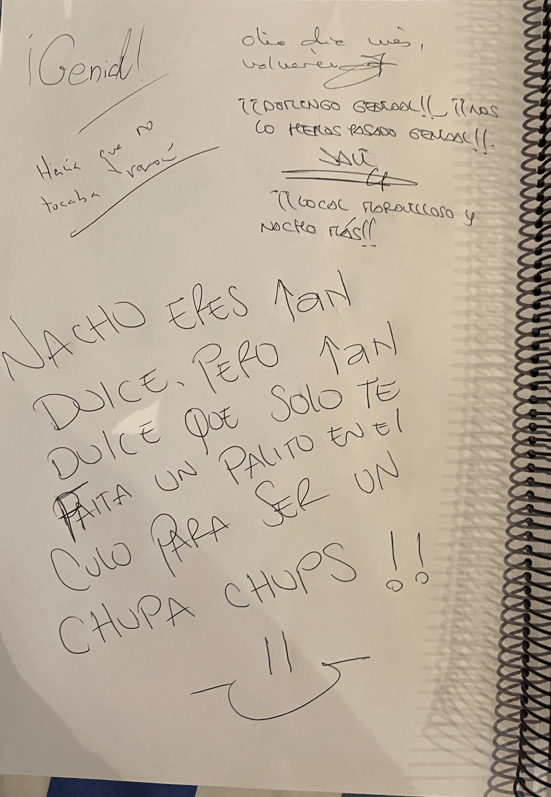 ¡Genial!
Hacía que no
tocaba
otro día más,
volveré
¡¡DOMINGO GENIAL!!, ¡¡NOS
LO HEMOS PASADO GENIAL!!
¡¡LOCAL MARAVILLOSO Y
NACHO MÁS!!
NACHO ERES TAN
DULCE, PERO TAN
DULCE QUE SOLO TE
FALTA UN PALITO EN EL
CULO PARA SER UN
CHUPA CHUPS !!